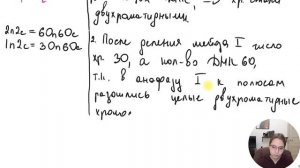 двухроматирными
2n2c = 60n60c
1n2c = 30n60c
2. После деления мейоза I число
хр. 30, а кол-во ДНК 60,
т.к. в анафазу I к полюсам
разошлись целые двухроматидные
хромо